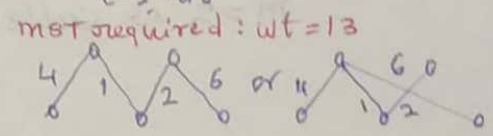 MST required : wt = 13
4 1 2 6 or 4 1 6 2